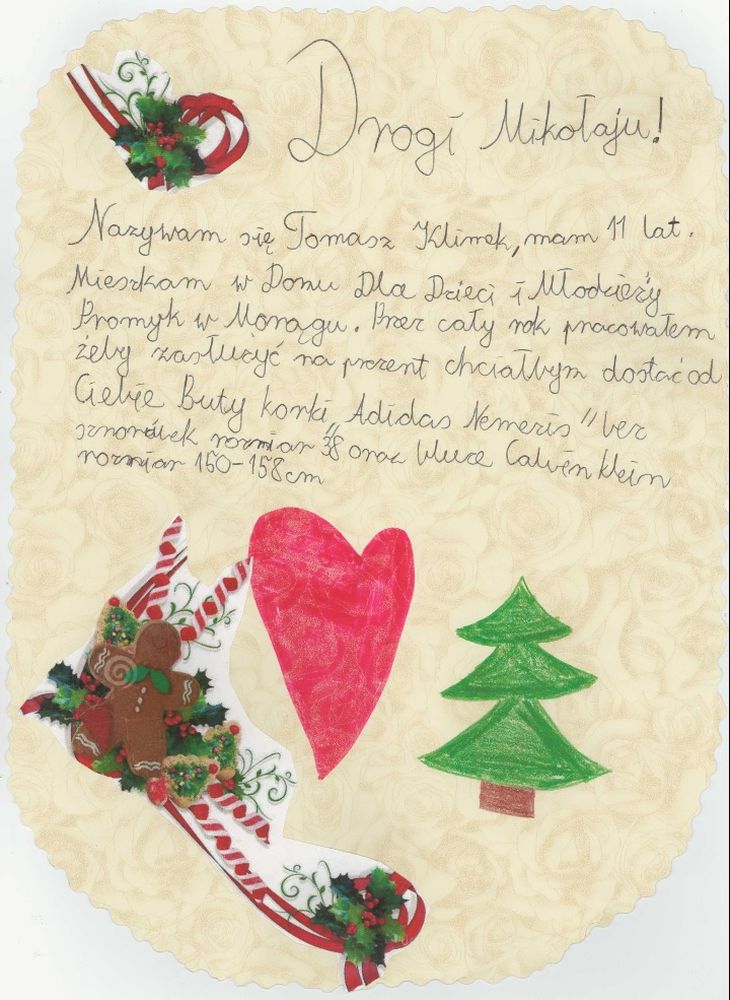 Drogi Mikołaju!
Nazywam się Tomasz Klimek, mam 11 lat.
Mieszkam w Domu Dla Dzieci i Młodzieży
Promyk w Morągu. Przez cały rok pracowałem
żeby zasłużyć na prezent chciałbym dostać od
Ciebie Buty korki "Adidas Nemeris" bez
sznorówek rozmiar 38 oraz bluze Calvin klein
rozmiar 150-158cm